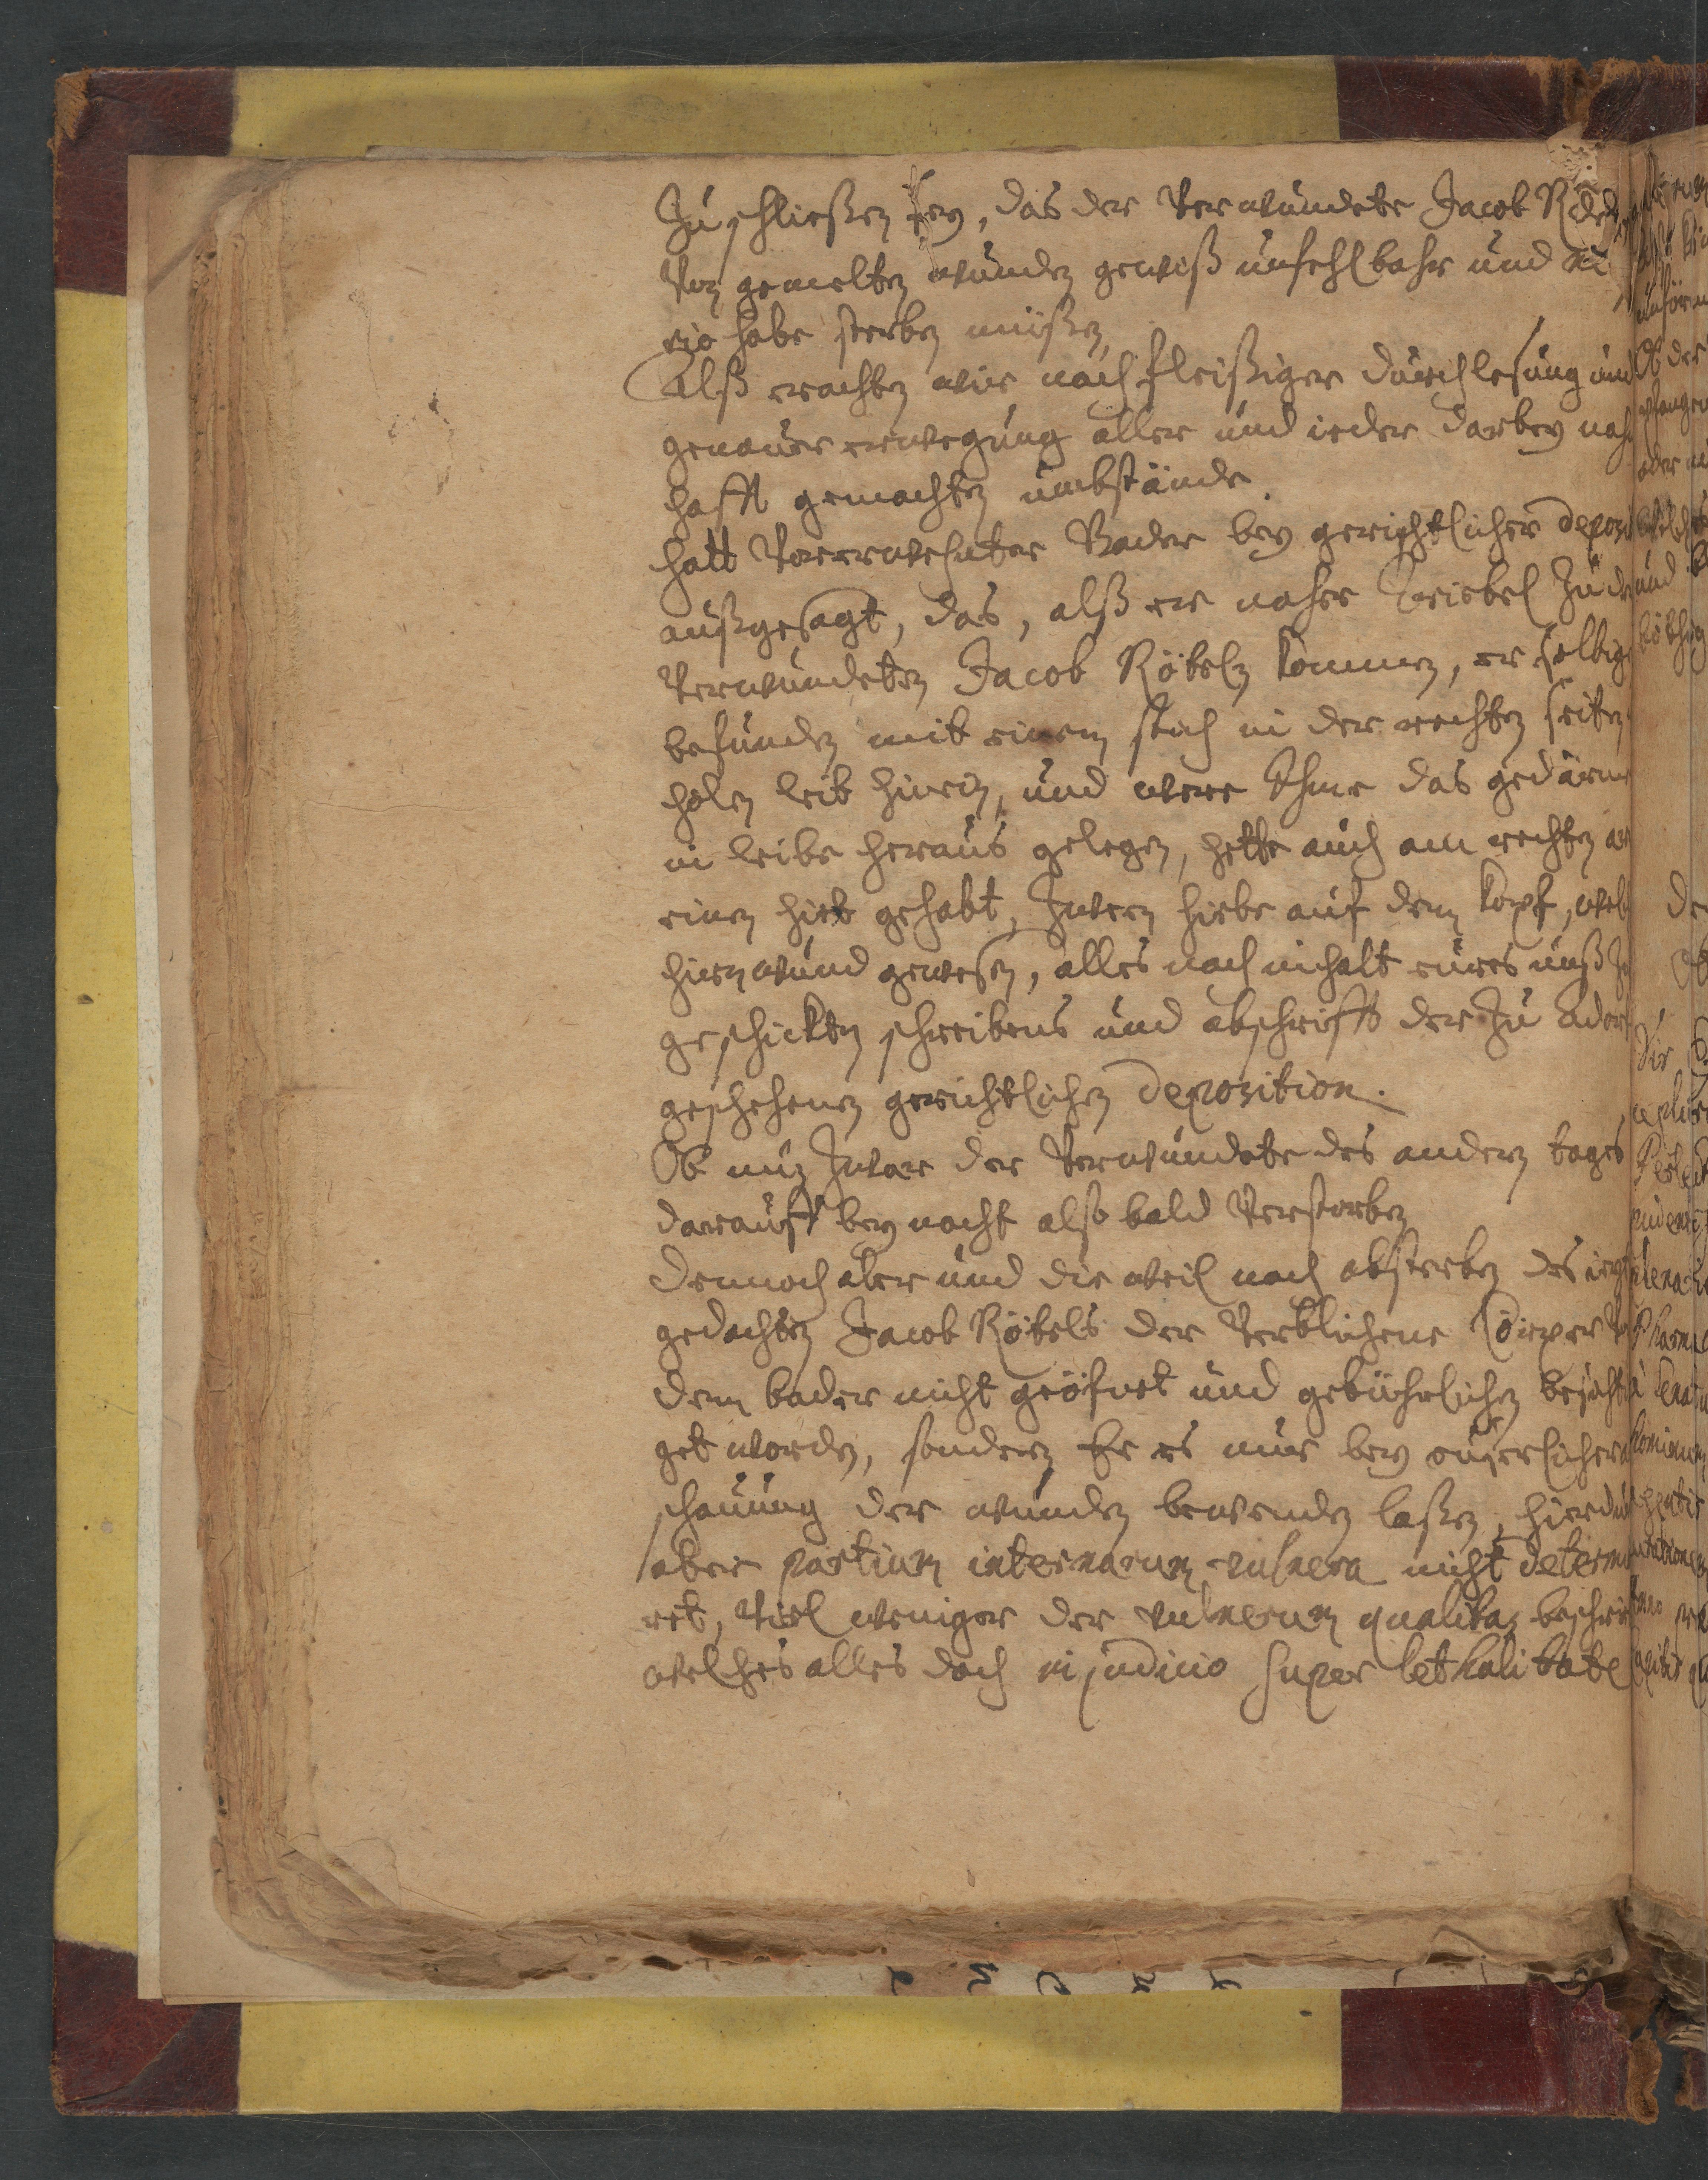 Zuschließen sey, das der Verwundete Jacob Röbel
Von gemelten wunden gewiß unfehlbahr und
rio habe sterben müßen,
Alß erachten wir nach fleißiger durchlesung und
genauer erwegung aller und ieder darbey nah
hafft gemachten umbstände.
hatt Vorerwehnter Bader bey gerichtlicher deposi
außgesagt, das, alß er naher Triebel zu de
Verwundeten Jacob Röbeln kommen, er selbige
befunden mit einem stich in der rechten seiten
holen leib hinein, und were Ihme das gedärme
im leibe heraus gelegen, hette auch am rechten ar
einen hieb gehabt, Zween hiebe auf dem kopf, wel
hirnwund gewesen, alles nach inhalt eures unß zu
geschickten schreibens und abschrifft der zu
geschehenen gerichtlichen deposition.
Ob nun Zwar der Verwundete des andern tages
darauff bey nacht also bald Verstorben
dennoch aber und die weil nach absterben des
gedachten Jacob Röbels der Verblichene Cörper
dem bader nicht geöfnet und gebührlichen besichti
get worden, sondern Er es nur bey euserlicher
schauung der wunden bewenden laßen, hierdur
aber partium internarum vulnera nicht determi
ret, Viel weniger der vulnerum qualitas beschrie
welches alles doch in judicio super lethalitate